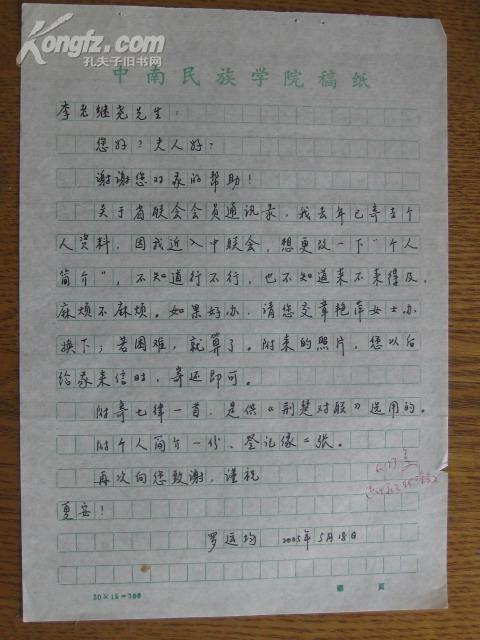 Kongfz.com
孔夫子旧书网
中南民族学院稿纸
李老继尧先生:
您好?夫人好?
谢谢您对我的帮助!
关于省联会会员通讯录,我去年已寄去个
人资料,因我近入中联会,想更改一下"个人
简介",不知道行不行,也不知道来不来得及,
麻烦不麻烦。如果好办,请您交章艳萍女士办
换下;若困难,就算了。附来的照片,您以后
给我来信时,寄还即可。
附寄七律一首,是供《荆楚对联》选用的。
附个人简介一份、登记像二张。
再次向您致谢,谨祝
夏安!
罗运均 2005年5月18日
20×15=300 页